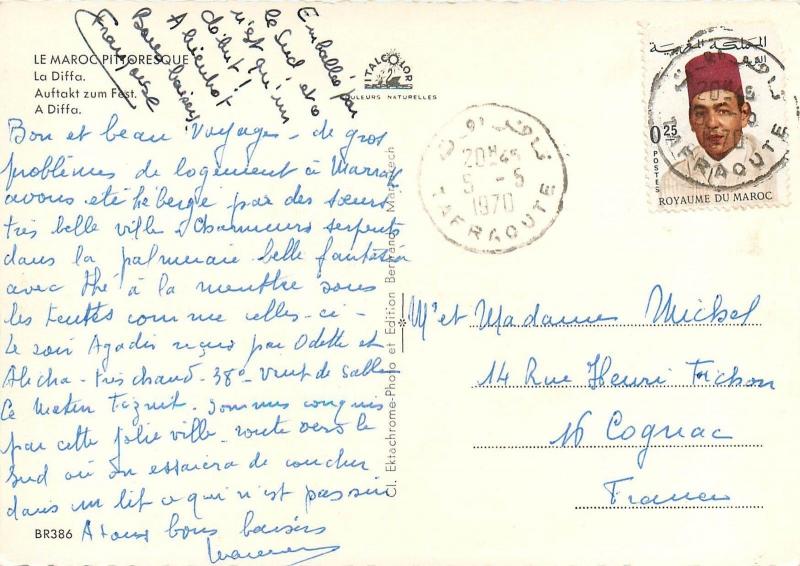 Emballée par
le Sud et ce
n'est qu'un
début !
A bientôt
Bons baisers
Françoise
LE MAROC PITTORESQUE
La Diffa.
Auftakt zum Fest.
A Diffa.
ITALCOLOR
COULEURS NATURELLES
Bon et beau voyage - de gros
problèmes de logement à Marrak
avons été hébergé par des sœurs
très belle ville - Charmeurs serpents
dans la palmeraie belle fantasia
avec thé à la menthe sous
les tentes comme celles-ci -
Le soir Agadir reçus par Odette et
très chaud - 38° vent de sable
Ce matin Tiznit. Sommes conquis
par cette jolie ville. route vers le
Sud où on essaiera de coucher
dans un lit ce qui n'est pas sûr
A tous bons baisers
BR386
Cl. Ektachrome-Photo et Edition Bertrand, Marrakech
20H45
5 - 5
1970
TAFRAOUTE
المملكة المغربية
0.25
POSTES
ROYAUME DU MAROC
TAFRAOUTE
Mr et Madame Michel
14 Rue Henri Fichon
16 Cognac
France